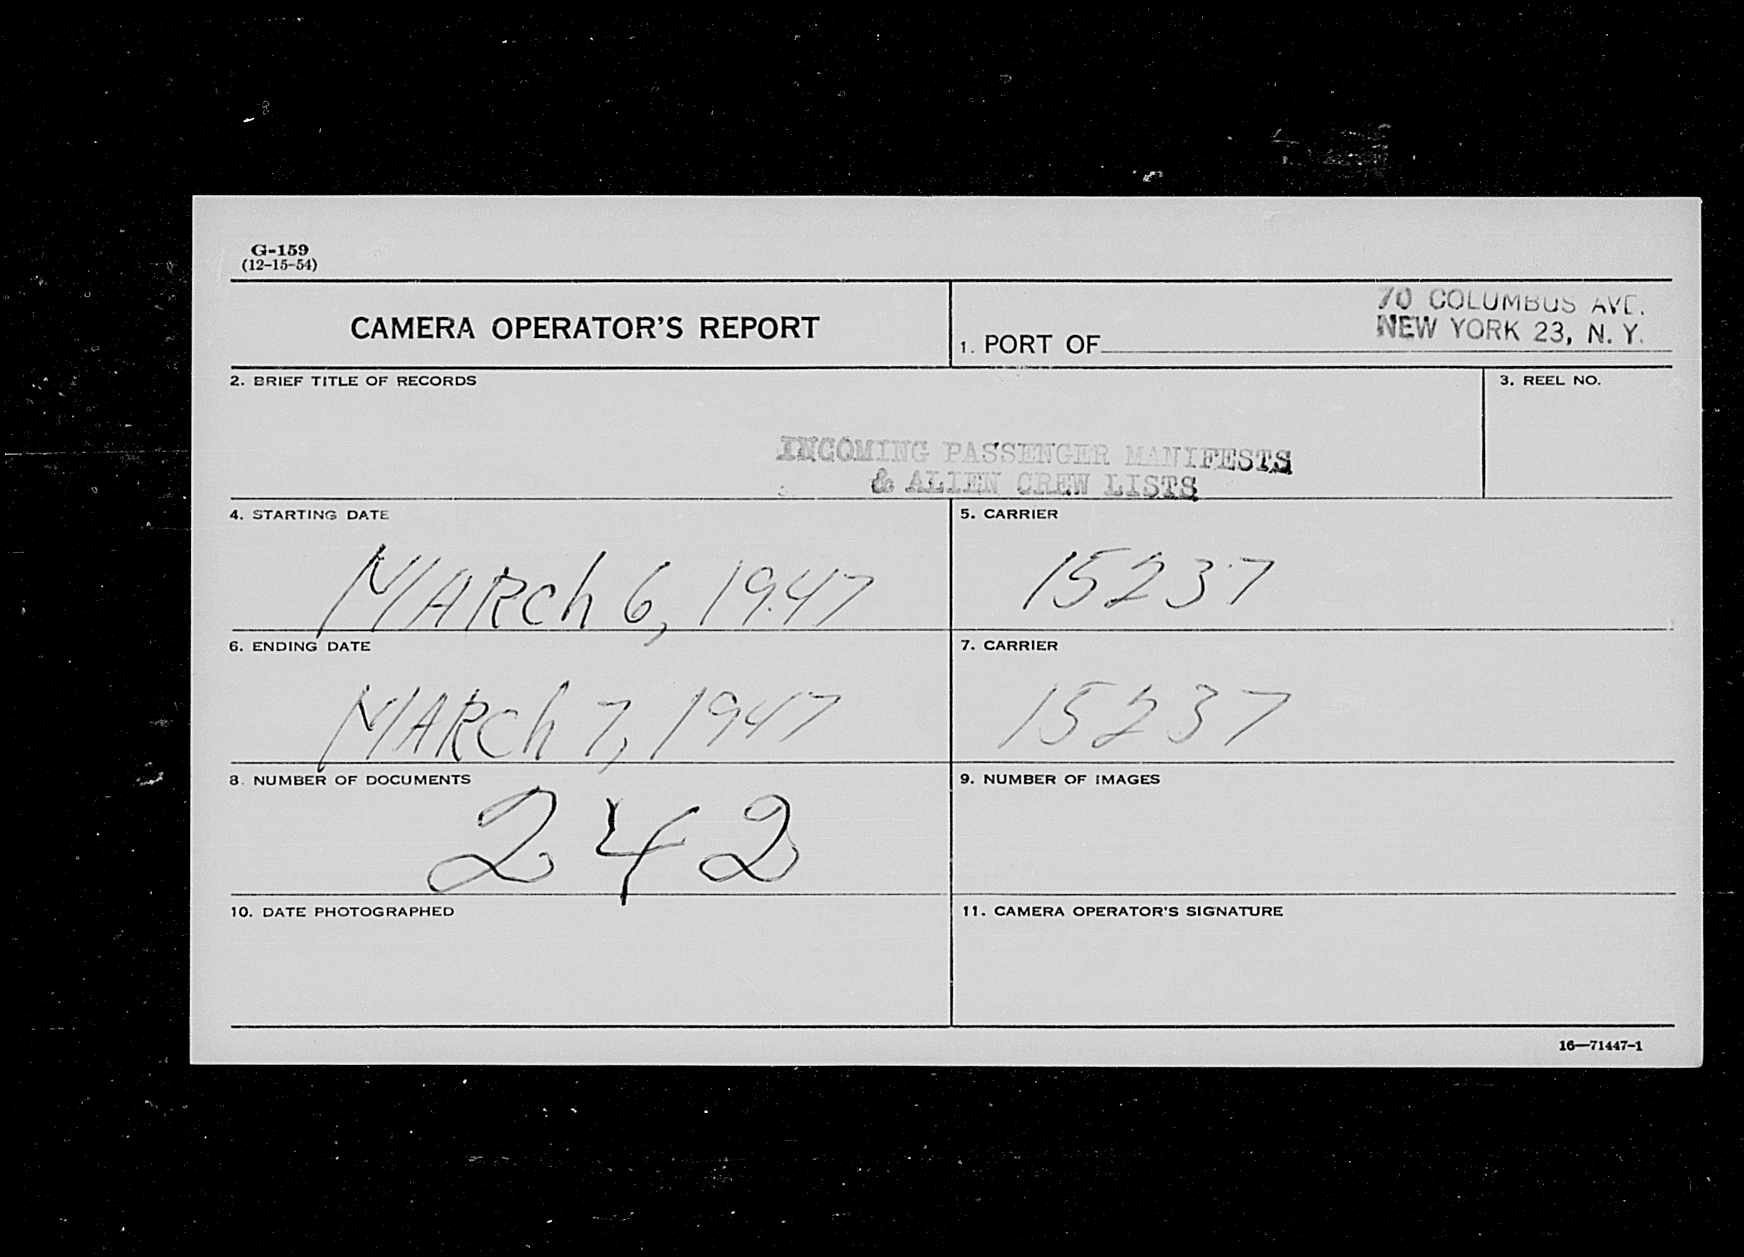 G-159
(12-15-54)
CAMERA OPERATOR'S REPORT
70 COLUMBUS AVE.
1. PORT OF NEW YORK 23, N. Y.
2. BRIEF TITLE OF RECORDS
3. REEL NO.
INCOMING PASSENGER MANIFESTS
& ALIEN CREW LISTS
4. STARTING DATE
5. CARRIER
MARCh 6, 1947
15237
6. ENDING DATE
7. CARRIER
MARCh 7, 1947
15237
8. NUMBER OF DOCUMENTS
9. NUMBER OF IMAGES
242
10. DATE PHOTOGRAPHED
11. CAMERA OPERATOR'S SIGNATURE
16—71447-1